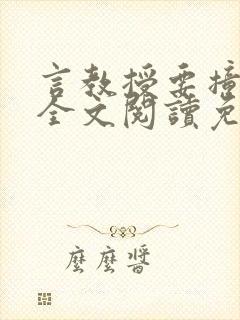 言教授要撞
全文閱讀免
麼麼醬